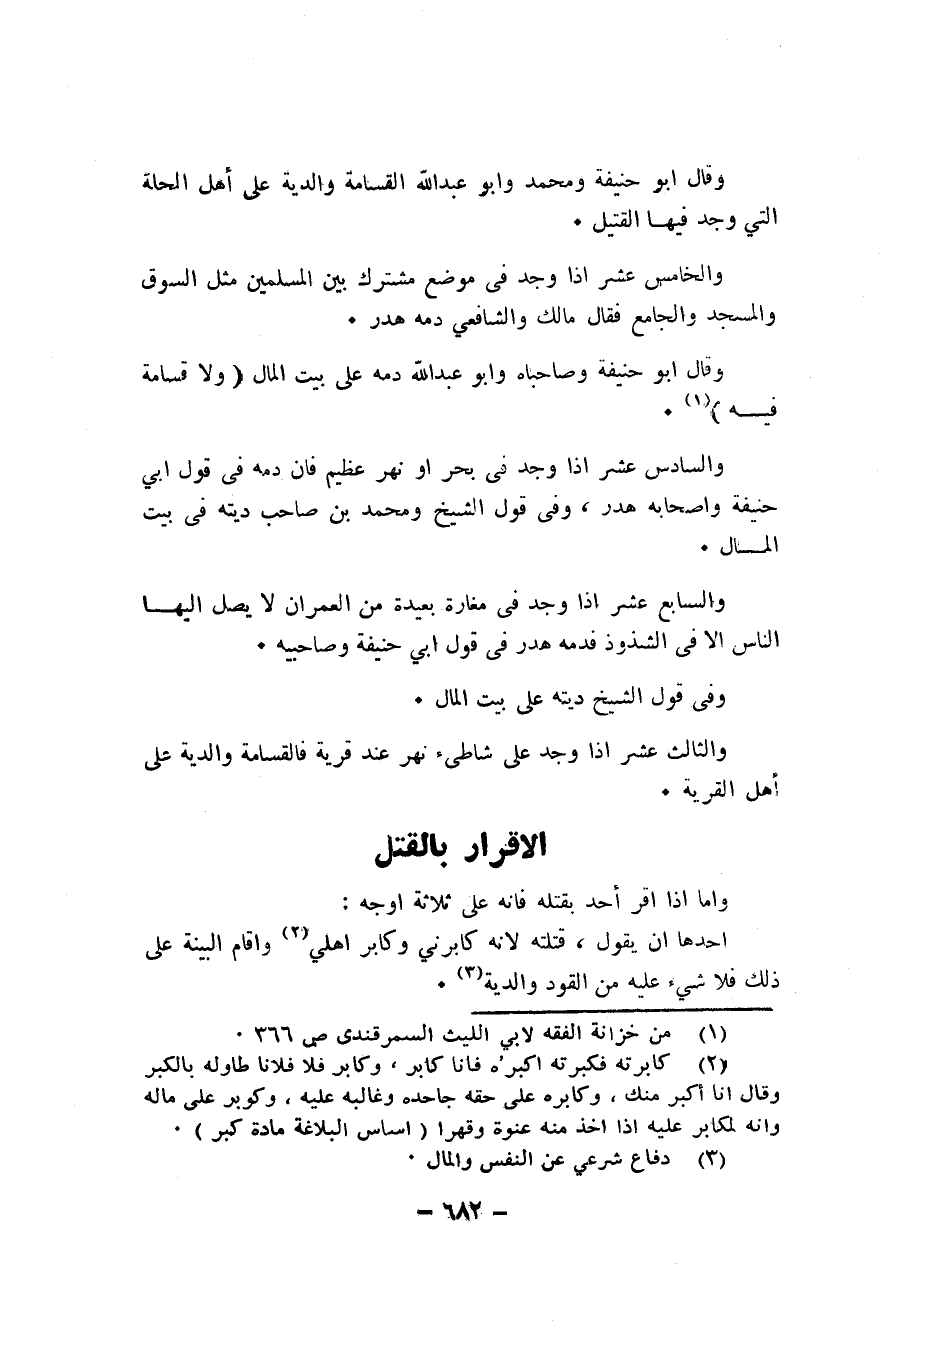 وقال ابو حنيفة ومحمد وابو عبدالله القسامة والدية على أهل المحلة
التي وجد فيهـــا القتيل .
والخامس عشر اذا وجد فى موضع مشترك بين المسلمين مثل السوق
والمسجد والجامع فقال مالك والشافعي دمه هدر .
وقال ابو حنيفة وصاحباه وابو عبدالله دمه على بيت المال ( ولا قسامة
فيـــــه )(١) .
والسادس عشر اذا وجد فى بحر او نهر عظيم فان دمه فى قول ابي
حنيفة واصحابه هدر ، وفى قول الشيخ ومحمد بن صاحب ديته فى بيت
المـــــال .
والسابع عشر اذا وجد فى مغارة بعيدة من العمران لا يصل اليهـــا
الناس الا فى الشذوذ فدمه هدر فى قول ابي حنيفة وصاحبيه .
وفى قول الشيخ ديته على بيت المال .
والثالث عشر اذا وجد على شاطىء نهر عند قرية فالقسامة والدية على
أهل القرية .
الاقرار بالقتل
واما اذا اقر أحد بقتله فانه على ثلاثة اوجه :
احدها ان يقول ، قتلته لانه كابرني وكابر اهلي(٢) واقام البينة على
ذلك فلا شيء عليه من القود والدية(٣) .
(١) من خزانة الفقه لابي الليث السمرقندى ص ٣٦٦ .
(٢) كابرته فكبرته اكبر'ه فانا كابر ، وكابر فلا فلانا طاوله بالكبر
وقال انا أكبر منك ، وكابره على حقه جاحده وغالبه عليه ، وكوبر على ماله
وانه لمكابر عليه اذا اخذ منه عنوة وقهرا ( اساس البلاغة مادة كبر ) .
(٣) دفاع شرعي عن النفس والمال .
– ٦٨٢ –